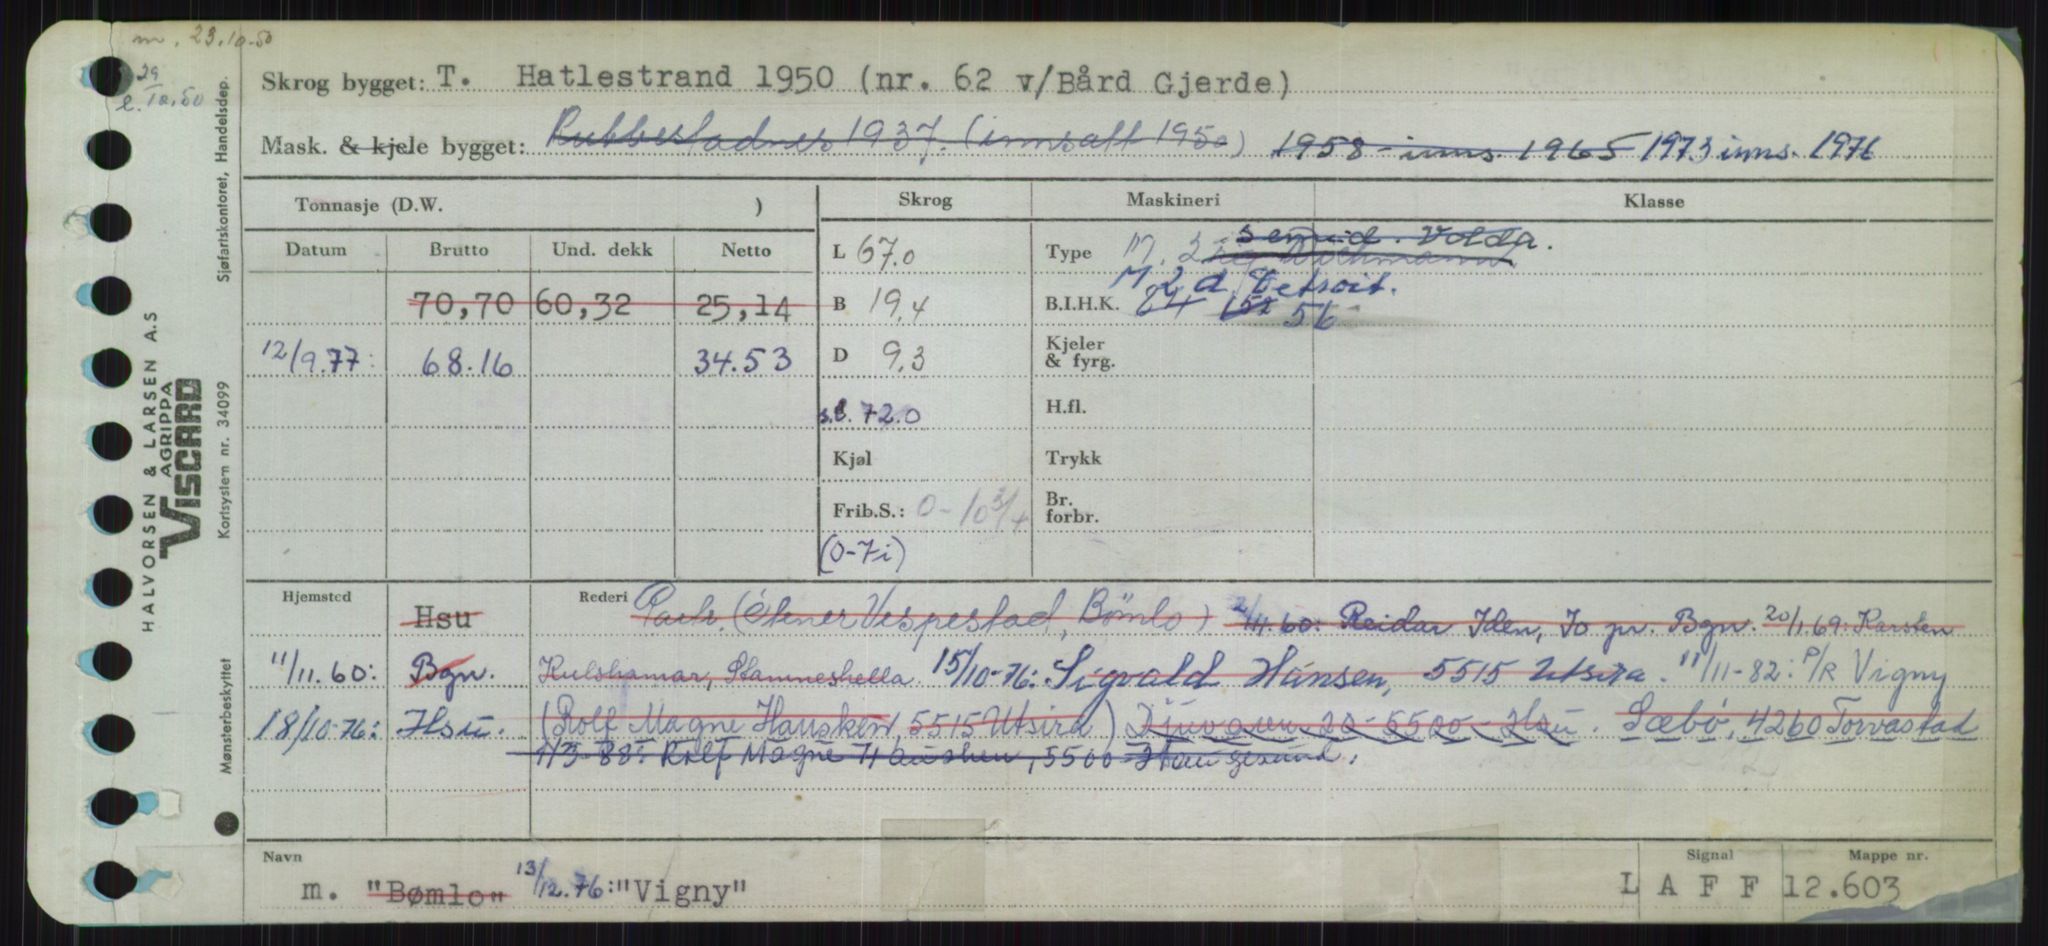 m. 23.10-50
29
e. 10.50
Skrog bygget: T. Hatlestrand 1950 (nr. 62 v/Bård Gjerde)
Mask. & kjele bygget: Rubbestadnes 1937. (innsatt 1950) 1958 - inns. 1965 1973 inns. 1976
Tonnasje (D.W. )
Skrog
Maskineri
Klasse
Datum Brutto Und. dekk Netto
70,70 60,32 25,14
12/9.77: 68.16 34.53
L 67.0
B 19,4
D 9,3
s.l. 72.0
Kjøl
Frib.S.: 0-10 3/4
(0-7i)
semid. Volda.
Type M.
M 2 d Detroit.
B.I.H.K. 56
Kjeler
& fyrg.
H.fl.
Trykk
Br.
forbr.
Hjemsted
Rederi
Hsu Partr. (Einer Vespestad, Bömlo) 2/11.60: Reidar Iden, Io pr. Bgn. 20/1.69: Karsten
11/11.60: Bgn. Kulshamar, Stamneshella 15/10-76: Sigvald Hansen, 5515 Utsira. 11/11-82: P/R Vigny
18/10-76: Hsu. (Rolf Magne Hausken, 5515 Utsira) Djuvaveien 20 - 5500 - Hsu. Sæbø, 4260 Torvastad
1/3-88: Rolf Magne Hausken, 5500 Haugesund.
Navn
m. "Bømlo" 13/12.76: "Vigny"
Signal
L A F F
Mappe nr.
12.603
HALVORSEN & LARSEN A.S
AGRIPPA
VISCARD
Mønsterbeskyttet Kortsystem nr. 34099 Sjøfartskontoret, Handelsdep.